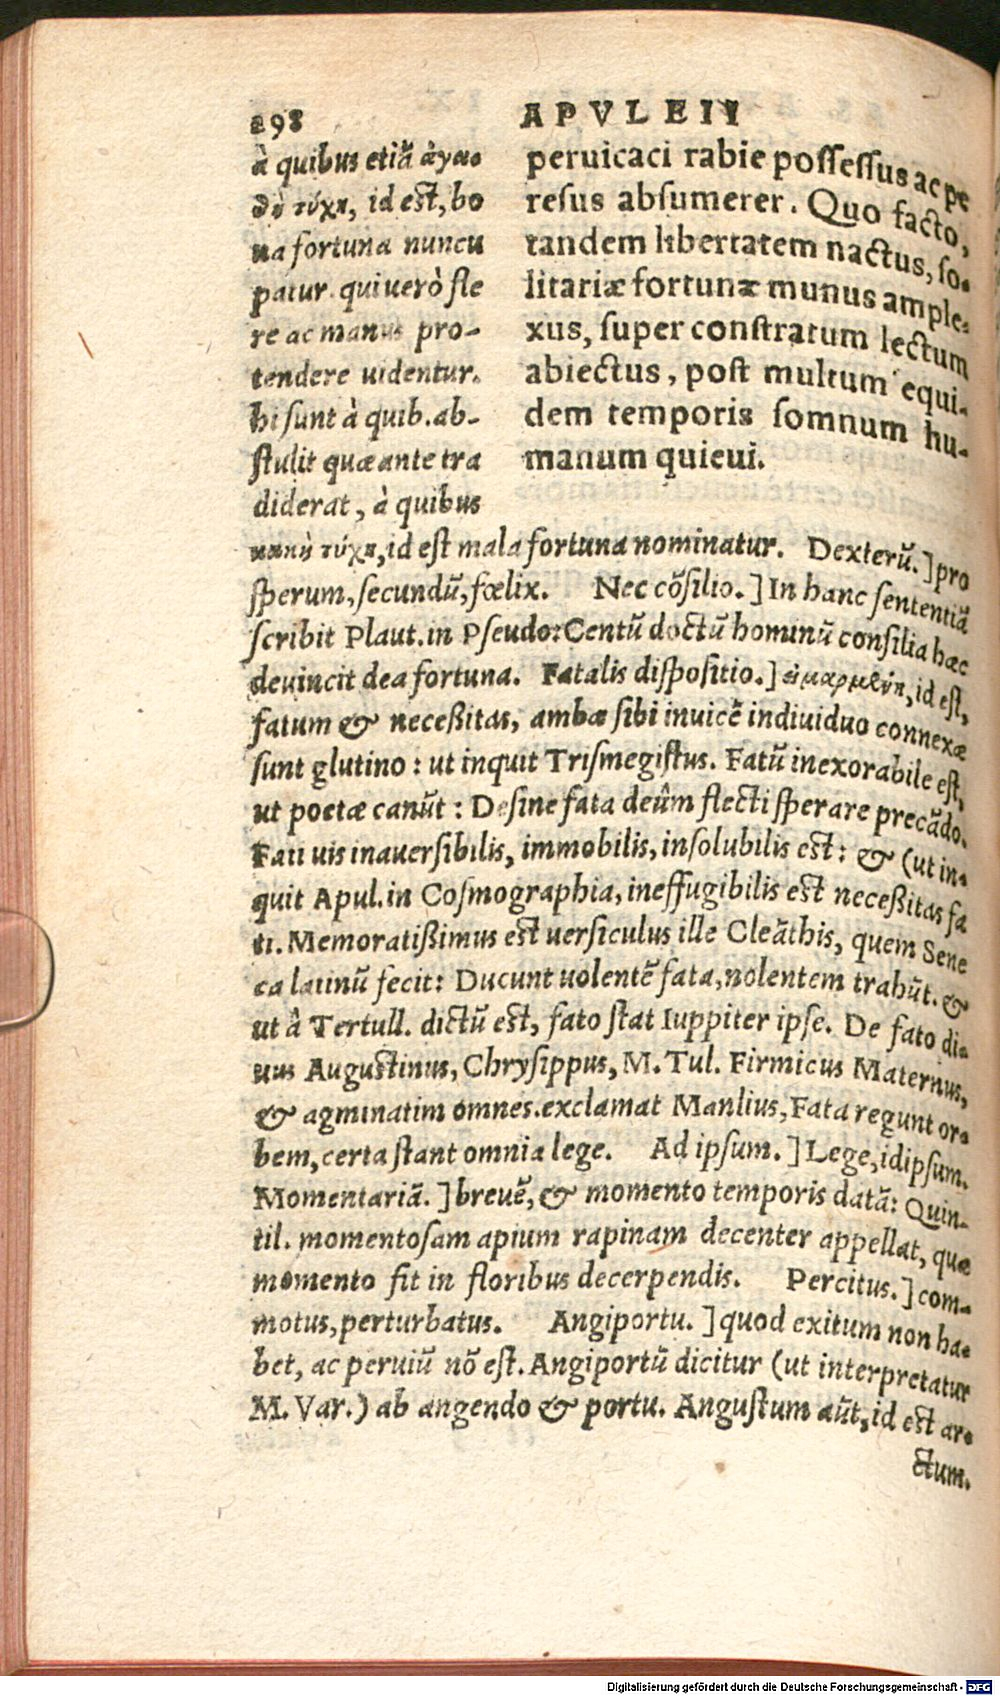 298
APVLEII
à quibus etiã ἀγα-
θὴ τύχη, id est, bo
na fortuna nuncu
patur. qui uerò fle
re ac manus pro-
tendere uidentur.
hi sunt à quib. ab-
stulit quæ ante tra
diderat, à quibus
peruicaci rabie possessus ac pe
resus absumerer. Quo facto,
tandem libertatem nactus, so-
litariæ fortunæ munus ample-
xus, super constratum lectum
abiectus, post multum equi-
dem temporis somnum hu-
manum quieui.
κακὴ τύχη, id est mala fortuna nominatur. Dexterũ.] pro
sperum, secundũ, fœlix. Nec cõsilio.] In hanc sententiã
scribit Plaut. in Pseudo: Centũ doctũ hominũ consilia hæc
deuincit dea fortuna. Fatalis dispositio.] εἱμαρμένη, id est,
fatum & necessitas, ambæ sibi inuicẽ indiuiduo connexæ
sunt glutino: ut inquit Trismegistus. Fatũ inexorabile est,
ut poetæ canũt: Desine fata deûm flecti sperare precãdo.
Fati uis inauersibilis, immobilis, insolubilis est: & (ut in-
quit Apul. in Cosmographia, ineffugibilis est necessitas fa
ti. Memoratissimus est uersiculus ille Cleãthis, quem Sene
ca latinũ fecit: Ducunt uolentẽ fata, nolentem trahũt. &
ut â Tertull. dictũ est, fato stat Iuppiter ipse. De fato di-
uus Augustinus, Chrysippus, M. Tul. Firmicus Maternus,
& agminatim omnes. exclamat Manlius, Fata regunt or-
bem, certa stant omnia lege. Ad ipsum.] Lege, id ipsum.
Momentariã.] breuẽ, & momento temporis datã: Quin-
til. momentosam apium rapinam decenter appellat, quæ
momento fit in floribus decerpendis. Percitus.] com-
motus, perturbatus. Angiportu.] quod exitum non ha-
bet, ac peruiũ nõ est. Angiportũ dicitur (ut interpretatur
M. Var.) ab angendo & portu. Angustum aũt, id est ar-
ctum.
Digitalisierung gefördert durch die Deutsche Forschungsgemeinschaft - DFG